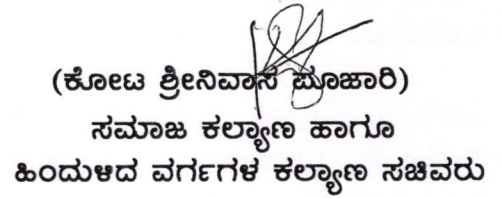 (ಕೋಟ ಶ್ರೀನಿವಾಸ ಪೂಜಾರಿ)
ಸಮಾಜ ಕಲ್ಯಾಣ ಹಾಗೂ
ಹಿಂದುಳಿದ ವರ್ಗಗಳ ಕಲ್ಯಾಣ ಸಚಿವರು